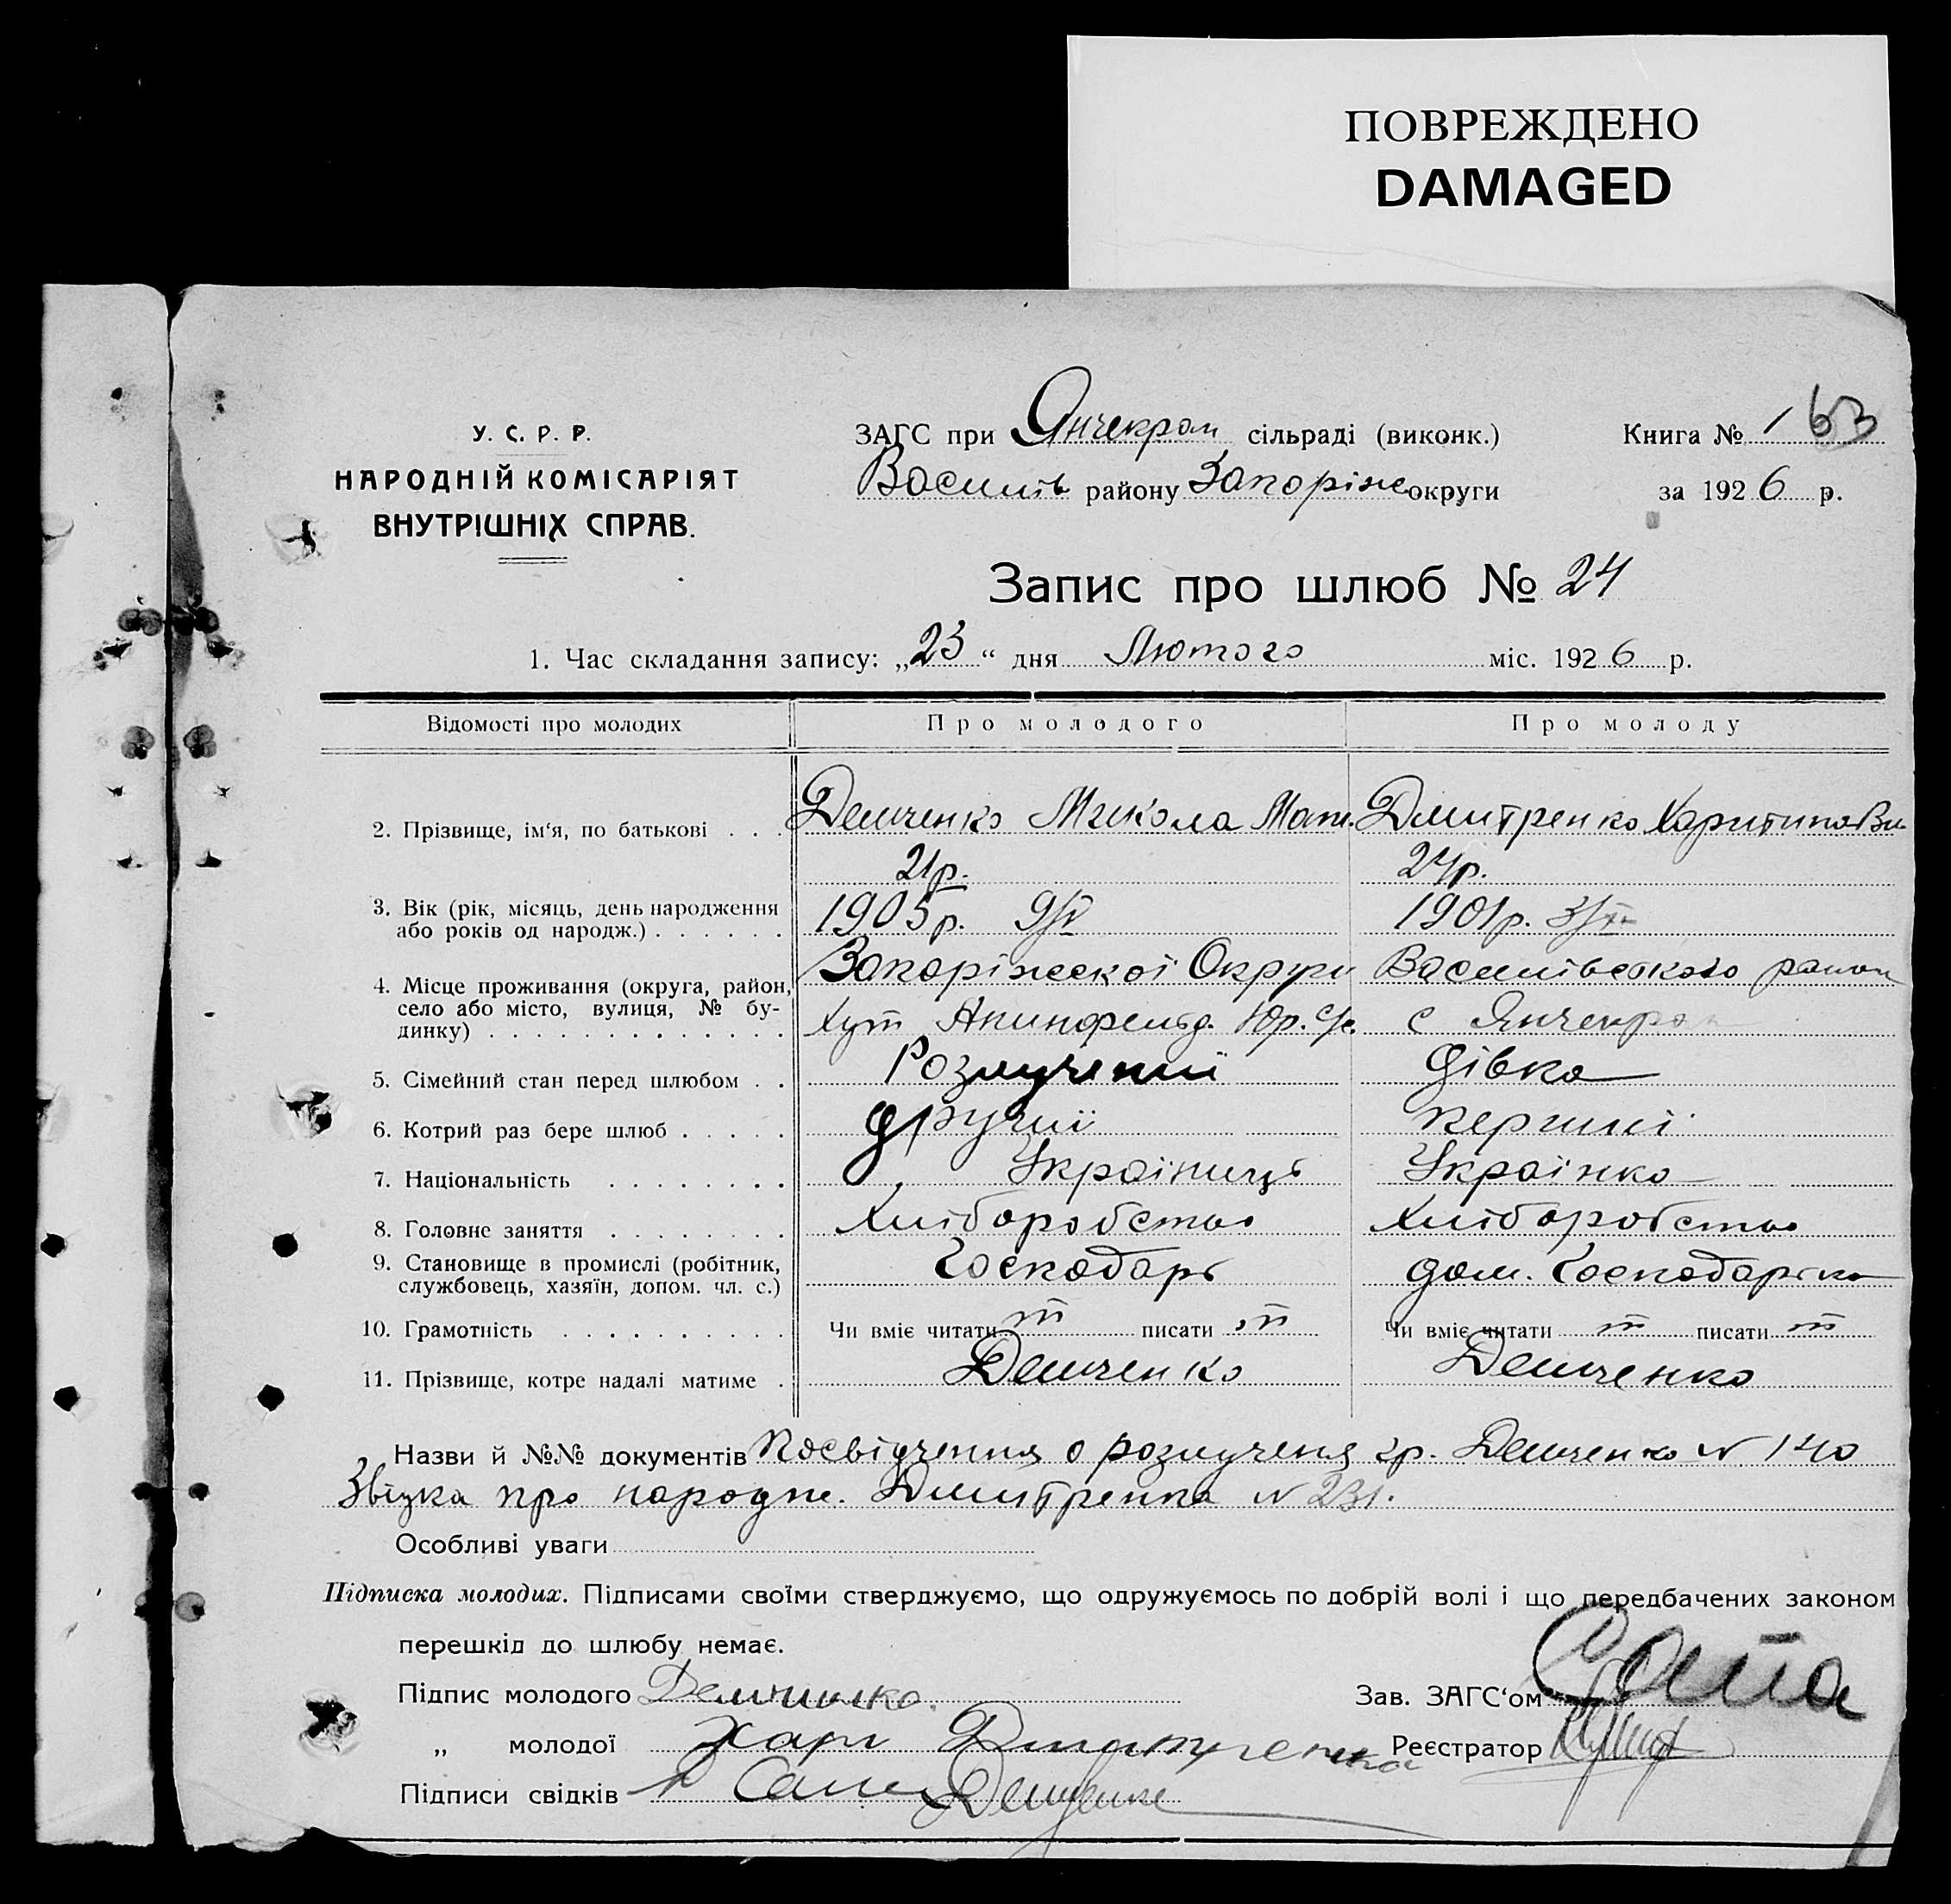 ПОВРЕЖДЕНО
DAMAGED
У. С. Р. Р.
НАРОДНІЙ КОМІСАРІЯТ
ВНУТРІШНІХ СПРАВ.
ЗАГС при Янчекрам сільраді (виконк.)
Василів району Запоріж округи
Книга № 1 63
за 1926 р.
Запис про шлюб № 24
1. Час складання запису: „23“ дня Лютого міс. 1926 р.
Відомості про молодих Про молодого Про молоду
2. Прізвище, ім‘я, по батькові . . . Демченко Микола Мат. Дмитренко Харитина
21р. 24р.
3. Вік (рік, місяць, день народження 1905р. 9/V 1901р.
або років од народж.) . . . . . .
4. Місце проживання (округа, район, Запоріжської Округи Василівського район
село або місто, вулиця, № бу-
динку) . . . . . . . . . . . . . хут с Янчекра
5. Сімейний стан перед шлюбом . . Розлучений дівка
6. Котрий раз бере шлюб . . . . . другий перший
7. Національність . . . . . . . . Українець Українка
8. Головне заняття . . . . . . . . Хліборобство Хліборобство
9. Становище в промислі (робітник, Господарь дом. Господарька
службовець, хазяїн, допом. чл. с.)
10. Грамотність . . . . . . . . . . Чи вміє читати т писати т Чи вміє читати т писати т
11. Прізвище, котре надалі матиме . Демченко Демченко
Назви й №№ документів Посвідчення о розлученя гр. Демченко N 140
Звізка про народж. Дмитренка N 231.
Особливі уваги
Підписка молодих. Підписами своїми стверджуємо, що одружуємось по добрій волі і що передбачених законом
перешкід до шлюбу немає.
Підпис молодого Демчинко. Зав. ЗАГС‘ом
„ молодої Хари Дматренка Реєстратор
Підписи свідків